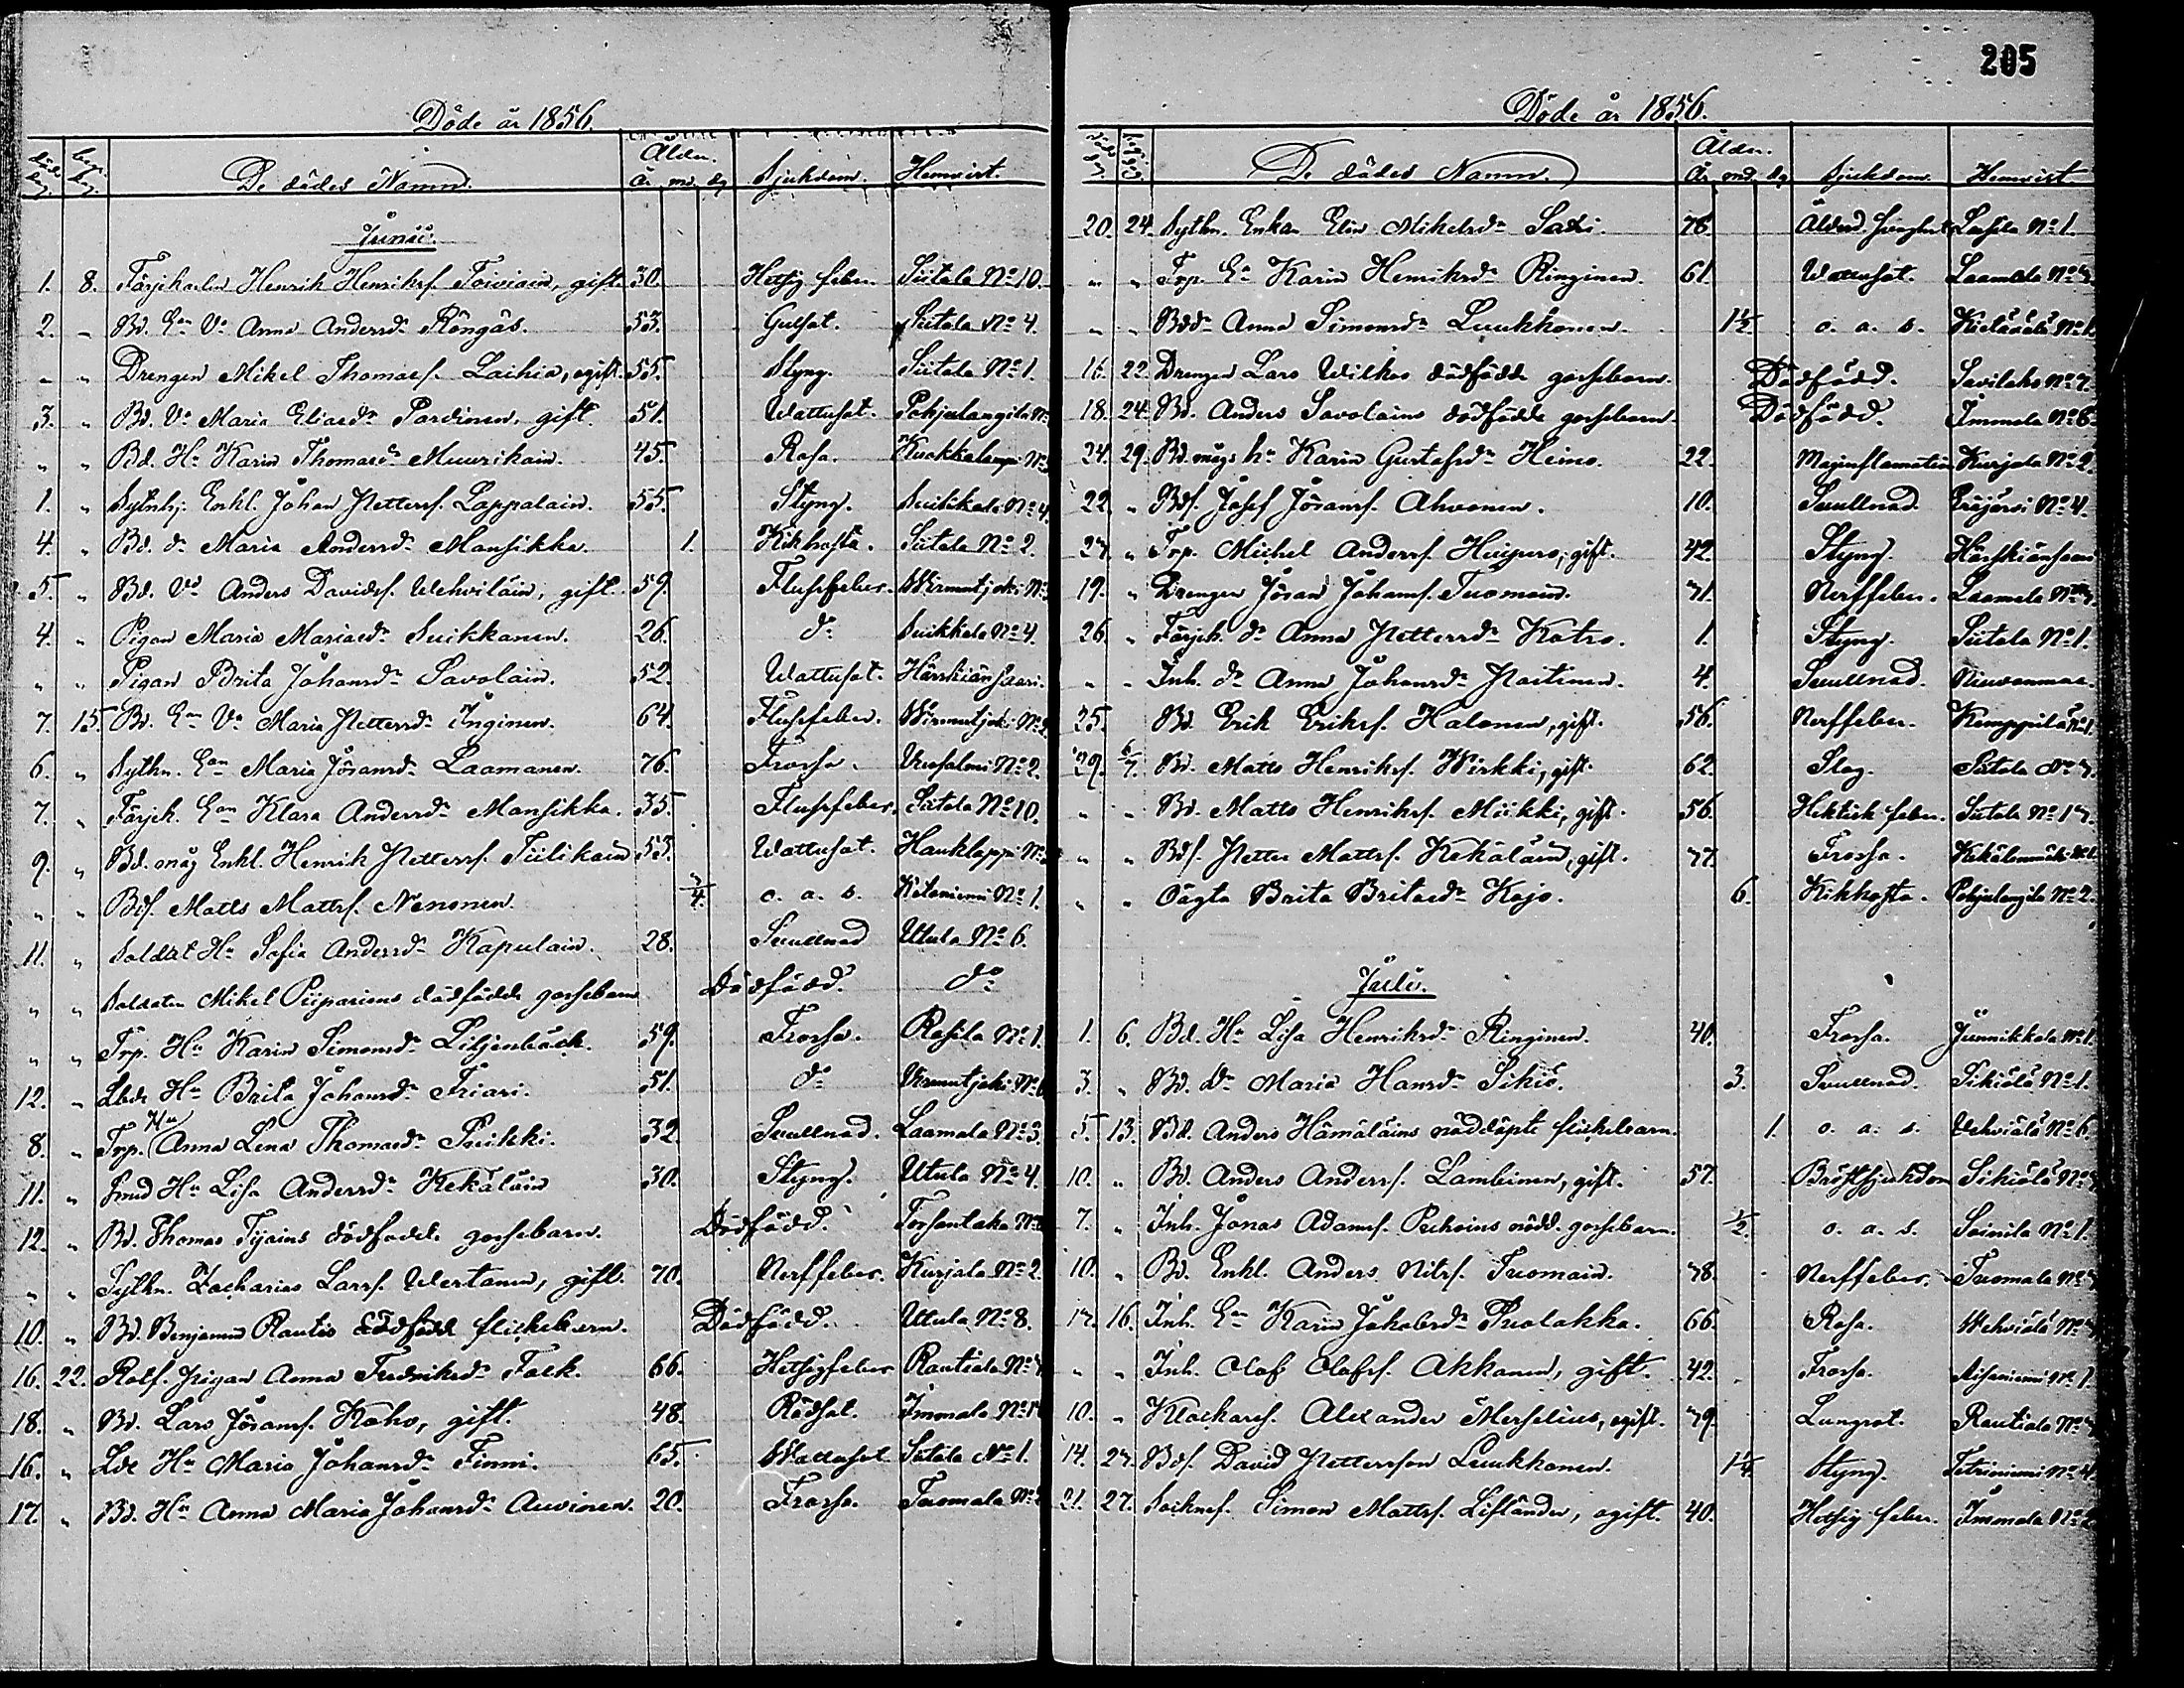 Döde år 1856.
död dag begr. dag De dödes Namn. Ålder. År md. dg Sjukdom. Hemvist.
Junii.
1. 8. Färjkarlen Henrik Henriksf. Toiviain, gift. 30. Hetsig feber. Siitola No 10.
2. " Bd. Ean Va Anna Andersdr Röngäs. 53. Gulsot. Siitola No 4.
" " Drengen Mikel Thomasf. Laihia, ogift. 55. Styng. Siitola No 1.
3. " Bd. Va Maria Eliasdr Pardinen, gift. 51. Wattusot. Pohjalangila No
" " Bd. Hu Karin Thomasdr Muurikain. 45. Rosa. Kuokkalampi No
1. " Sytnhj. Enkl. Johan Pettersf. Lappalain. 55. Styng. Suikkala No 4.
4. " Bd. dr Maria Andersdr Mansikka. 1. Kikhosta. Siitola No 2.
5. " Bd. Vd Anders Davidsf. Wehviläin, gift. 59. Flussfeber. Wirmutjoki No
4. " Pigan Maria Mariasdr Suikkanen. 26. do Suikkala No 4.
" " Pigan Brita Johansdr Savolain. 52. Wattusot. Härskiänsaari.
7. 15. Bd. Ean Va Maria Pettersdr Inginen. 64. Flussfeber. Wirmutjoki No 2
6. " Sythn. Ean Maria Jöransdr Laamanen. 76. Frossa. Uusalmi No 2.
7. " Färjck. Ean Klara Andersdr Mansikka. 35. Flussfeber. Siitola No 10.
9. " Bd. måg Enkl. Henrik Pettersf. Tiilikain 53. Wattusot. Hauklappi No
" " Bdf. Matts Mattsf. Nenonen. 3/4. o. a. s. Ketoniemi No 1.
11. " Soldat Hu Sofia Andersdr Kapulain. 28. Svullnad Utula No 6.
" " Soldaten Mikel Piipariens dödfödde gossebarn Dödfödd. do
" " Trp. Hu Karin Simonsdr Liljenbäck. 59. Frossa. Rasila No 1.
12. " Lbde Hu Brita Johansdr Friari. 51. do Wirmutjoki No 6
8. " Trp. Hu Anna Lena Thomasdr Puikki. 32. Svullnad. Laamala No 3.
11. " Smed Hu Lisa Andersdr Kekäläin 30. Styng. Utula No 4.
12. " Bd. Thomas Tijains dödfödde gossebarn. Dödfödd. Torsanlaks No
" " Sythn. Zacharias Larsf. Wertanen, gift. 70. Nerffeber. Kurjala No 2.
10. " Bd. Benjamin Rautio dödfödd flickebarn. Dödfödd. Utula No 8.
16. 22. Rotf. pigan Anna Fredriksdr Falk. 66. Hetsigfeber Rautiala No 7
18. " Bd. Lars Jöransf. Koho, gift. 48. Rödsot. Immola No 14
16. " Lde Hu Maria Johansdr Finni. 65. Wattusot. Siitola No 1.
17. " Bd. Hu Anna Maria Johansdr Auvinen. 20. Frossa. Tuomala No
205
Döde år 1856.
De dödes Namn. Ålder. År md. dg Sjukdom. Hemvist.
20. 24. Sythn. Enkan Elin Mikelsdr Saxi. 78. Ålderd. svaghet Lahsila No 1.
" " Trp. Ea Karin Henriksdr Ringinen. 61. Wattusot. Laamala No 7.
" " Bddr Anna Simonsdr Luukkonen. 1 1/2. o. a. s. Kielävälä No 1.
16. 22. Drengen Lars Wilkos dödfödde gossebarn. Dödfödd. Savilahs No 7.
18. 24. Bd. Anders Savolains dödfödde gossebarn. Dödfödd. Immola No 6.
24. 29. Bd. mågs hu Karin Gustafsdr Heimo. 22. Maginflamation Kurjala No 2.
22. " Bdf. Josef Jöransf. Ahvonen. 10. Svullnad. Eräjärvi No 4.
27. " Trp. Michel Andersf. Huipero, gift. 42. Styng. Härskiänsaari
19. " Drengen Jöran Johansf. Tuomain. 71. Nerffeber. Laamala No 7.
26. " Färjck. dr Anna Pettersdr Katro. 1. Styng. Siitola No 1.
" " Inh. dr Anna Johansdr Paitinen. 4. Svullnad. Niuvanmaa.
25. Bd. Erik Eriksf. Halonen, gift. 56. Nerffeber. Kemppilä No 1.
29. 6/7. Bd. Matts Henriksf. Wirkki, gift. 62. Slag. Siitola No 7.
" " Bd. Matts Henriksf. Miikki, gift. 56. Hektisk feber. Siitola No 17.
" " Bdf. Petter Mattsf. Kekäläin, gift. 77. Frossa. Kekäleenmäki No 1.
" " Oägta Brita Britasdr Kojo. 6. Kikhosta. Pohjalangila No 2.
Julii.
1. 6. Bd. Hu Lisa Henriksdr Ringinen. 40. Frossa. Junnikkala No 1.
3. " Bd. Dr Maria Hansdr Sikiö. 3. Svullnad. Sikiölä No 1.
5. 13. Bd. Anders Hämäläins nöddöpte flickebarn. 1. o. a. s. Wehviälä No 6.
10. " Bd. Anders Andersf. Lambinen, gift. 57. Bröstsjukdom Sikiölä No
7. " Inh. Jonas Adamsf. Puhoins nödd. gossebarn. 1/2. o. a. s. Soinila No 1.
10. " Bd. Enkl. Anders Nilsf. Tuomain. 78. Nerffeber. Tuomala No
17. 16. Inh. Ean Karin Jakobsdr Puolakka. 66. Rosa. Wehviälä No
" " Inh. Olof Olofsf. Akkanen, gift. 42. Frossa. Äisäniemi No 1.
10. " Klockaref. Alexander Merselius, ogift. 79. Lungsot. Rautiala No
14. 27. Bdf. David Pettersson Luukkonen. 1 1/4. Styng. Tetriniemi No 4.
21. 27. Socknef. Simon Mattsf. Lifländer, ogift. 40. Hetsig feber. Immola No 2